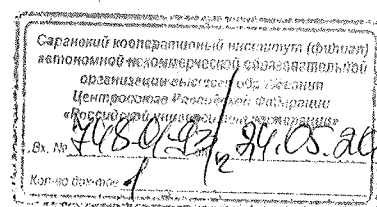 Саранский кооперативный институт (филиал)
автономной некоммерческой образовательной
организации высшего образования
Центросоюза Российской Федерации
«Российский университет кооперации»
Вх. № 24.05.20
Кол-во